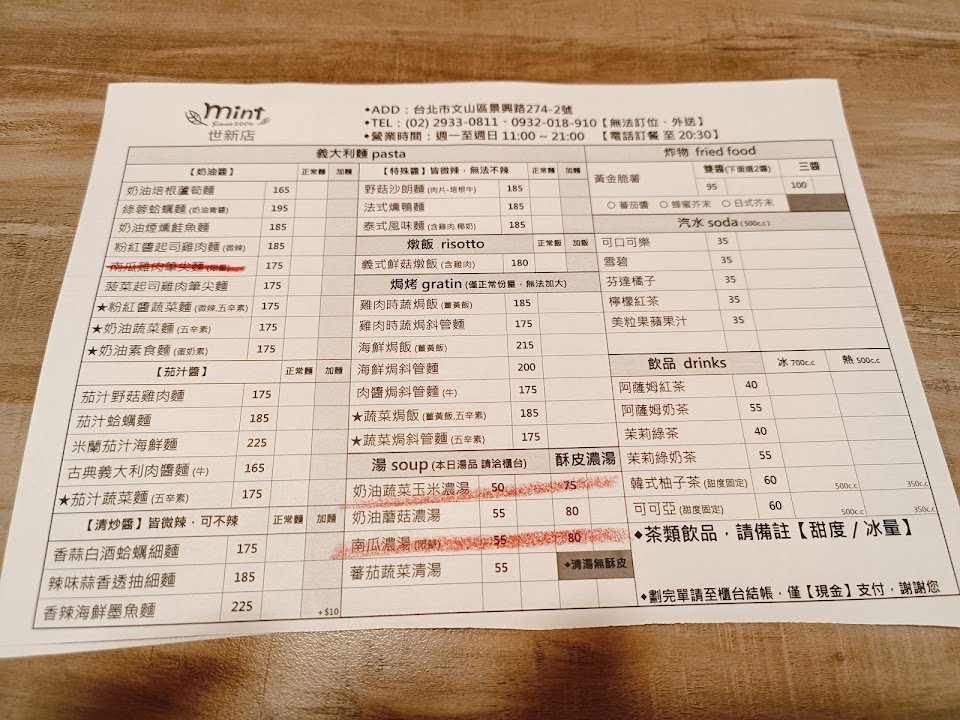 mint
Since 2004
世新店
◆ADD：台北市文山區景興路274-2號
◆TEL：(02) 2933-0811、0932-018-910【無法訂位、外送】
◆營業時間：週一至週日 11:00 ~ 21:00 【電話訂餐 至 20:30】
義大利麵 pasta
【奶油醬】 正常麵 加麵
奶油培根蘆筍麵 165
綠蓉蛤蠣麵 (奶油青醬) 195
奶油煙燻鮭魚麵 185
粉紅醬起司雞肉麵 (微辣) 185
南瓜雞肉筆尖麵 (限量) 175
菠菜起司雞肉筆尖麵 175
★粉紅醬蔬菜麵 (微辣.五辛素) 175
★奶油蔬菜麵 (五辛素) 175
★奶油素食麵 (蛋奶素) 175
【茄汁醬】 正常麵 加麵
茄汁野菇雞肉麵 175
茄汁蛤蠣麵 185
米蘭茄汁海鮮麵 225
古典義大利肉醬麵 (牛) 165
★茄汁蔬菜麵 (五辛素) 175
【清炒醬】皆微辣，可不辣 正常麵 加麵
香蒜白酒蛤蠣細麵 175
辣味蒜香透抽細麵 185
香辣海鮮墨魚麵 225 +$10
【特殊醬】皆微辣，無法不辣 正常麵 加麵
野菇沙朗麵 (肉片-培根牛) 185
法式燻鴨麵 185
泰式風味麵 (含雞肉.椰奶) 185
燉飯 risotto 正常飯 加飯
義式鮮菇燉飯 (含雞肉) 180
焗烤 gratin (僅正常份量，無法加大)
雞肉時蔬焗飯 (薑黃飯) 185
雞肉時蔬焗斜管麵 175
海鮮焗飯 (薑黃飯) 215
海鮮焗斜管麵 200
肉醬焗斜管麵 (牛) 175
★蔬菜焗飯 (薑黃飯.五辛素) 185
★蔬菜焗斜管麵 (五辛素) 175
湯 soup (本日湯品 請洽櫃台) 酥皮濃湯
奶油蔬菜玉米濃湯 50 75
奶油蘑菇濃湯 55 80
南瓜濃湯 (限量) 55 80
蕃茄蔬菜清湯 55 ◆清湯無酥皮
炸物 fried food
雙醬(下面選2醬) 三醬
黃金脆薯 95 100
○ 蕃茄醬 ○ 蜂蜜芥末 ○ 日式芥末
汽水 soda (500c.c)
可口可樂 35
雪碧 35
芬達橘子 35
檸檬紅茶 35
美粒果蘋果汁 35
飲品 drinks 冰 700c.c 熱 500c.c
阿薩姆紅茶 40
阿薩姆奶茶 55
茉莉綠茶 40
茉莉綠奶茶 55
韓式柚子茶 (甜度固定) 60 500c.c 350c.c
可可亞 (甜度固定) 60 500c.c 350c.c
◆茶類飲品，請備註【甜度 / 冰量】
◆劃完單請至櫃台結帳，僅【現金】支付，謝謝您